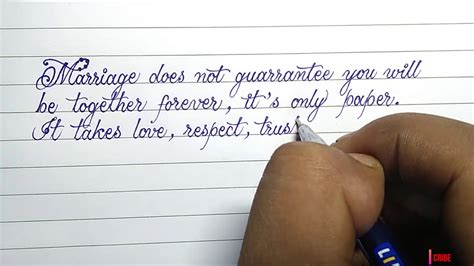 Marriage does not guarrantee you will
be together forever, it's only paper.
It takes love, respect, trus
CRIBE